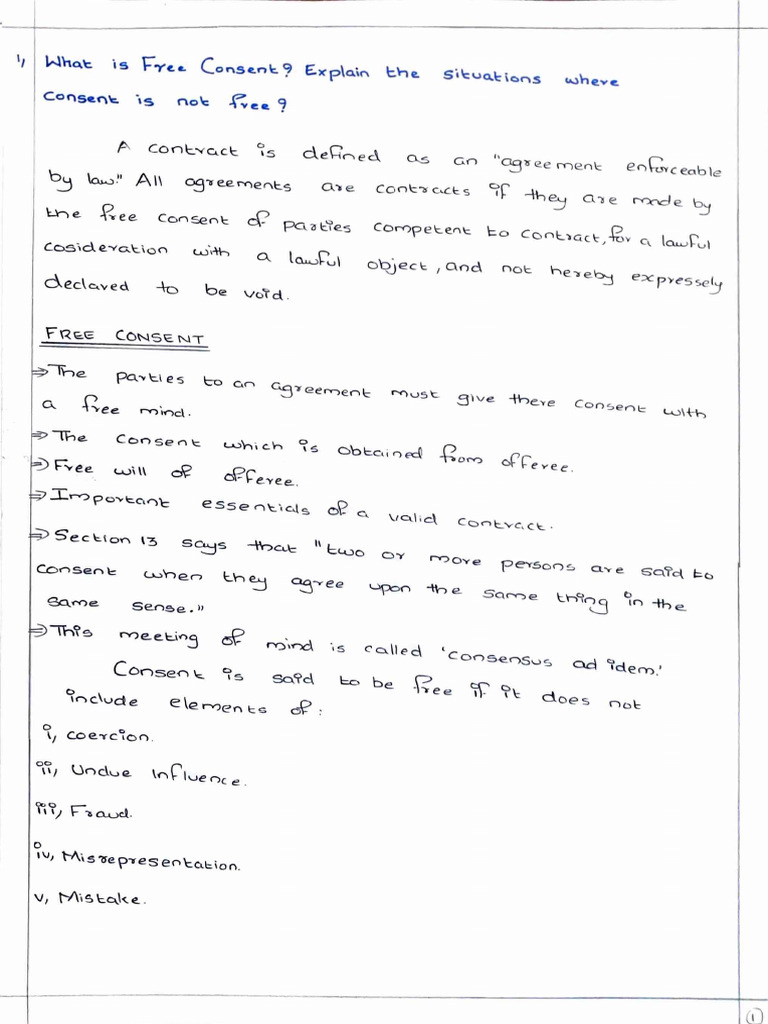 1, What is Free Consent? Explain the situations where
consent is not free?
A contract is defined as an "agreement enforceable
by law." All agreements are contracts if they are made by
the free consent of parties competent to contract, for a lawful
cosideration with a lawful object, and not hereby expressely
declared to be void.
FREE CONSENT
⇒ The parties to an agreement must give there consent with
a free mind.
⇒ The consent which is obtained from offeree.
⇒ Free will of offeree.
⇒ Important essentials of a valid contract.
⇒ Section 13 says that "two or more persons are said to
consent when they agree upon the same thing in the
same sense."
⇒ This meeting of mind is called 'consensus ad idem.'
Consent is said to be free if it does not
include elements of:
i, coercion.
ii, Undue Influence.
iii, Fraud.
iv, Misrepresentation.
v, Mistake.
1